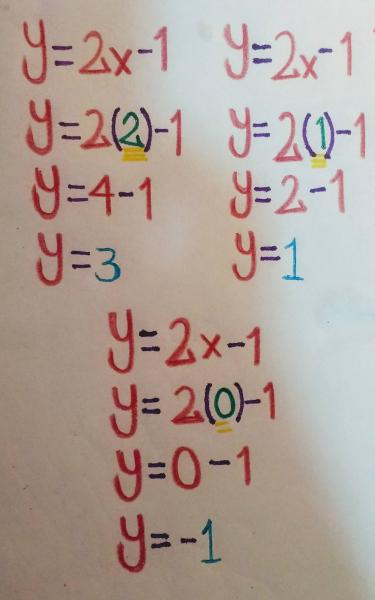 y=2x-1
y=2(2)-1
y=4-1
y=3
y=2x-1
y=2(1)-1
y=2-1
y=1
y=2x-1
y=2(0)-1
y=0-1
y=-1